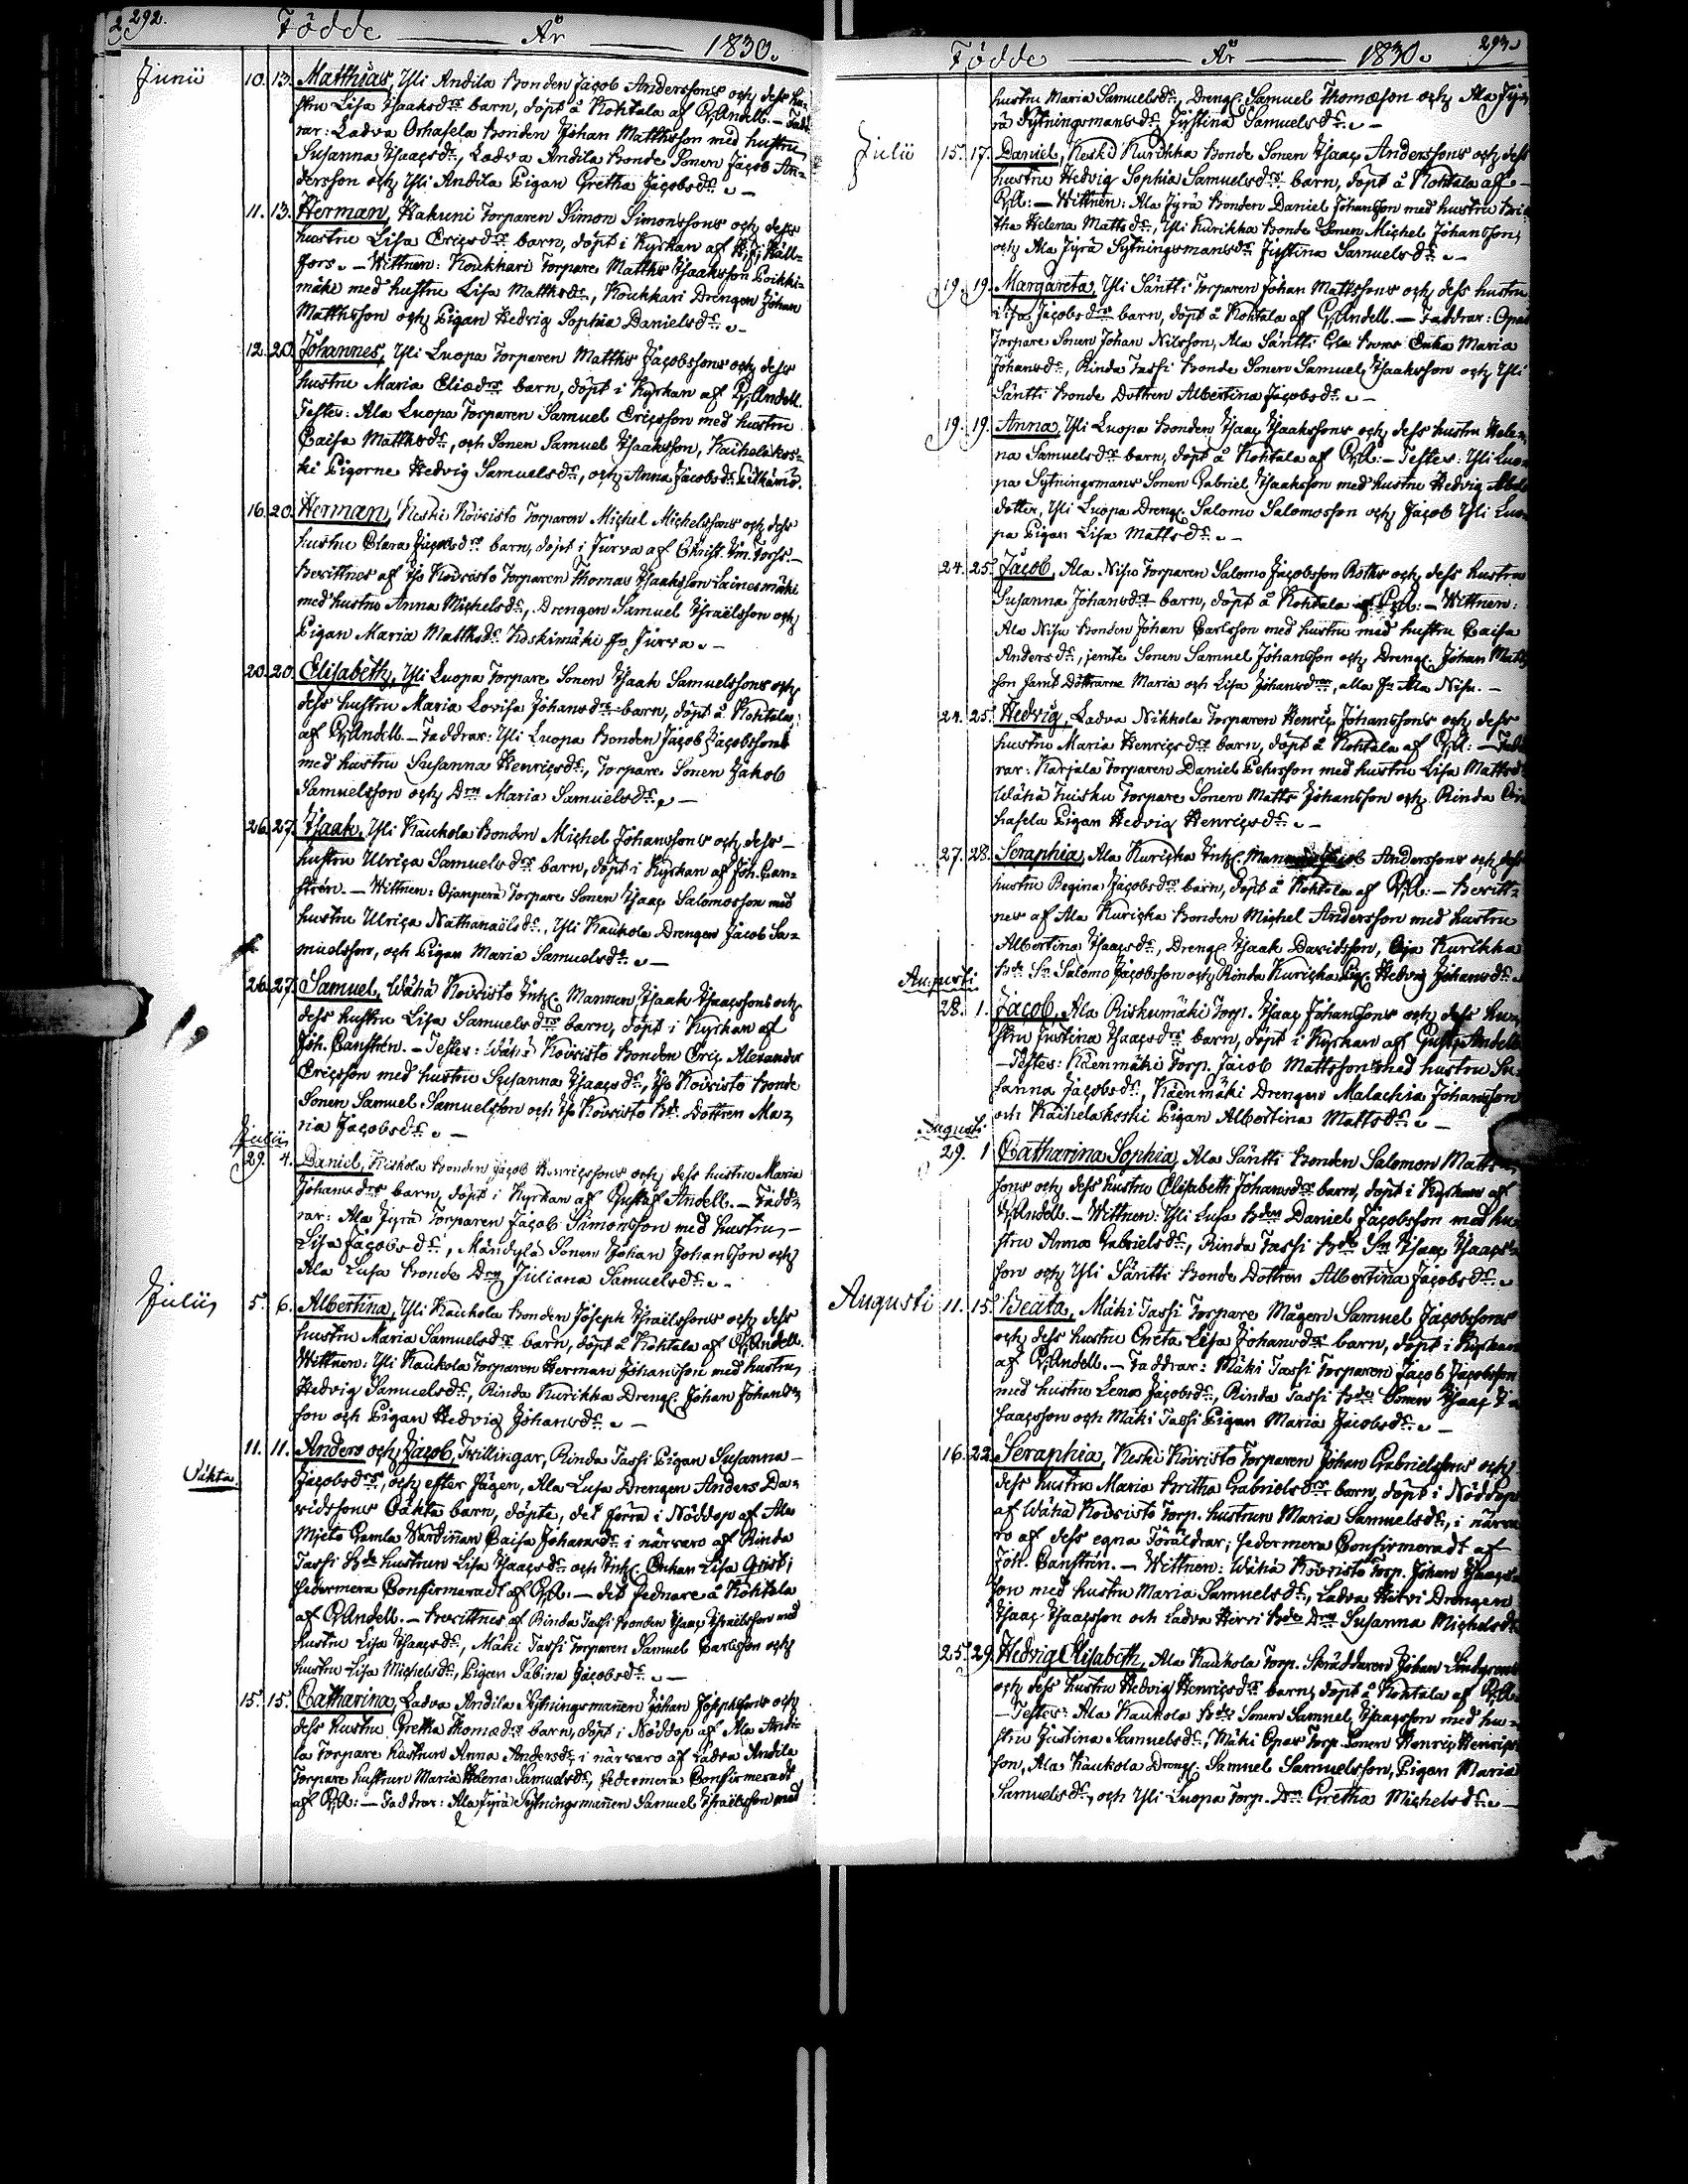 292.
Födde ——— År ——— 1830.
Junii 10. 13. Matthias, Yli Andila Bonden Jacob Anderssons och dess hu-
stru Lisa Isaaksdrs barn, döpt å Kohtala af G. Andell. — Fadd-
rar: Ladva Orhafela Bonden Johan Matthsson med hustru
Susanna Isaacsdr, Ladva Andila Bonde Sonen Jacob An-
dersson och Yli Andila Pigan Gretha Jacobsdr. —
11. 13. Herman, Hakuni Torparen Simon Simonssons och dess
hustru Lisa Ericsdrs barn, döpt i Kyrkan af H. J. Häll-
fors. — Wittnen: Koukkari Torpare Matths Isaaksson Poikki-
mäki med hustru Lisa Matthsdr, Koukkari Drengen Johan
Matthsson och Pigan Hedvig Sophia Danielsdr. —
12. 20. Johannes, Yli Luopa Torparen Matths Jacobssons och dess
hustru Maria Eliædrs barn, döpt i Kyrkan af G. Andell.
Testes: Ala Luopa Torparen Samuel Ericsson med hustru
Caisa Matthsdr, och Sonen Samuel Isaaksson, Kaihelakos-
ki Pigorne Hedvig Samuelsdr, och Anna Jacobsdr Pitkämö.
16. 20. Herman, Keski Koivisto Torparen Michel Michelssons och dess
hustru Clara Jacobsdrs barn, döpt i Jurva af Christ. Im. Forss. —
Bevittnes af Iso Koivisto Torparen Thomas Isaaksson Sainesmäki
med hustru Anna Michelsdr, Drengen Samuel Israëlsson och
Pigan Maria Matthsdr Koskimäki fr. Jurva. —
20. 20. Elisabeth, Yli Luopa Torpare Sonen Isaak Samuelssons och
dess hustru Maria Lovisa Johansdrs barn, döpt å Kohtala,
af G. Andell. — Faddrar: Yli Luopa Bonden Jacob Jacobsson
med hustru Susanna Henricsdr, Torpare Sonen Jakob
Samuelsson och Drn Maria Samuelsdr. —
26. 27. Isaak, Yli Kaukola Bonden Michel Johanssons och dess —
hustru Ulrica Samuelsdrs barn, döpt i Kyrkan af Joh. Can-
strén. — Wittnen: Ojanperä Torpare Sonen Isaac Salomosson med
hustru Ulrica Nathanaëlsdr, Yli Kaukola Drengen Jacob Sa-
muelsson, och Pigan Maria Samuelsdr. —
26. 27. Samuel, Wähä Koivisto Inh. Mannen Isaak Isaacssons och
dess hustru Lisa Samuelsdrs barn, döpt i Kyrkan af
Joh. Canstrén. — Testes: Wähä Koivisto Bonden Eric Alexander
Ericsson med hustru Susanna Isaacsdr, Iso Koivisto Bonde
Sonen Samuel Samuelsson och Iso Koivisto Bd. Dottren Ma-
ria Jacobsdr. —
Julii
29. 4. Daniel, Keskola Bonden Jacob Henricssons och dess hustru Maria
Johansdrs barn, döpt i Kyrkan af Gustaf Andell. — Fadd-
rar: Ala Jyrä Torparen Jacob Simonsson med hustru —
Lisa Jacobsdr, Mändylä Sonen Johan Johansson och
Ala Lusa Bonde Drn Juliana Samuelsdr. —
Julii 5. 6. Albertina, Yli Kaukola Bonden Joseph Israëlssons och dess
hustru Maria Samuelsdrs barn, döpt å Kohtala af G. Andell.
Wittnen: Yli Kaukola Torparen Herman Johansson med hustru
Hedvig Samuelsdr, Rinda Kurikka Dreng. Johan Johans-
son och Pigan Hedvig Johansdr. —
11. 11. Anders och Jacob, Tvillingar, Rinda Tassi Pigan Susanna —
Oäkta. Jacobsdrs, och efter sägen, Ala Lusa Drengen Anders Da-
vidssons Oäkta barn, döpte, det förra i Nöddop af Ala
Mieto Gamla Värdinnan Caisa Johansdr i närvaro af Rinda
Tassi Bde hustrun Lisa Isaacsdr och Inh. Enkan Lisa Qvist;
sedermera Confirmeradt af G. A. — det sednare å Kohtala
af G. Andell. — Bevittnes af Rinda Tassi Bonden Isaac Israëlsson med
hustru Lisa Isaacsdr, Mäki Tassi Torparen Samuel Carlsson och
hustru Lisa Michelsdr, Pigan Sabina Jacobsdr. —
15. 15. Catharina, Ladva Andila Sytningsmannen Johan Josephssons och
dess hustru Gretha Thomædrs barn, döpt i Nöddop af Ala Andi-
la Torpare hustrun Anna Andersdr i närvaro af Ladva Andila
Torpare hustrun Maria Helena Samuelsdr, sedermera Confirmeradt
af G. A: — Faddrar: Ala Jyrä Sytningsmannen Samuel Israëlsson med
293.
Födde ——— År ——— 1830.
hustru Maria Samuelsdr, Dreng. Samuel Thomæson och Ala Jy-
rä Sytningsmansdr Justina Samuelsdr. —
Julii 15. 17. Daniel, Keski Kurikka Bonde Sonen Isaac Anderssons och dess
hustru Hedvig Sophia Samuelsdrs barn, döpt å Kohtala af —
G. A: — Wittnen: Ala Jyrä Bonden Daniel Johansson med hustru Bri-
tha Helena Mattsdr, Yli Kurikka Bonde Sonen Michel Johansson,
och Ala Jyrä Sytningsmansdr Justina Samuelsdr. —
19. 19. Margareta, Yli Säntti Torparen Johan Mattssons och dess hustru
Jacobsdrs barn, döpt å Kohtala af G. Andell. — Faddrar: Opas
Torpare Sonen Johan Nilsson, Ala Säntti Enka Maria
Johansdr, Rinda Tassi Bonde Sonen Samuel Isaaksson och Yli
Säntti Bonde Dottren Albertina Jacobsdr. —
19. 19. Anna, Yli Luopa Bonden Isaac Isaakssons och dess hustru Hele-
na Samuelsdrs barn, döpt å Kohtala af G. A: — Testes: Yli Luo-
pa Sytningsmans Sonen Gabriel Isaaksson med hustru Hedvig
dotter, Yli Luopa Dreng. Salomo Salomosson och Jacob Yli Luo-
pa Pigan Lisa Mattsdr. —
24. 25. Jacob, Ala Nisu Torparen Salomo Jacobsson Roths och dess hustru
Susanna Johansdrs barn, döpt å Kohtala af G. A: — Wittnen:
Ala Nisu Bonden Johan Carlsson med hustru med hustru Caisa
Andersdr, jemte Sonen Samuel Johansson och Dreng. Johan Matts-
son samt Döttrarne Maria och Lisa Johansdrar, alla fr. Ala Nisu. —
24. 25. Hedvig, Ladva Nikkola Torparen Henric Johanssons och dess
hustru Maria Henricsdrs barn, döpt å Kohtala af G. A: — Fadd-
rar: Karjala Torparen Daniel Pehrsson med hustru Lisa Mattsdr
Wähä Huisku Torpare Sonen Matts Johansson och Rinda
hasela Pigan Hedvig Henricsdr. —
27. 28. Seraphia, Ala Kuricka Inh. Mannen Jacob Anderssons och dess
hustru Regina Jacobsdrs barn, döpt å Kohtala af G. A: — Bevitt-
nes af Ala Kuricka Bonden Michel Andersson med hustru
Albertina Isaacsdr, Dreng. Isaak Davidsson, Oja Kurikka
Bde Sn Salomo Jacobsson och Rinda Kuricka Pig. Hedvig Johansdr.
Augusti
28. 1. Jacob, Ala Riskumäki Torp. Isaac Johanssons och dess hu-
stru Justina Isaacsdrs barn, döpt i Kyrkan af Gust. Andell
— Testes: Käenmäki Torp. Jacob Mattsson med hustru Su-
sanna Jacobsdr, Käenmäki Drengen Malachia Johansson
och Kaihelakoski Pigan Albertina Mattsdr. —
Augusti
29. 1 Catharina Sophia, Ala Säntti Bonden Salomon Matts-
sons och dess hustru Elisabeth Johansdrs barn, döpt i Kyrkan af
G. Andell. — Wittnen: Yli Lusa Bden Daniel Jacobsson med hu-
stru Anna Gabrielsdr, Rinda Tassi Bde Sn Isaac Isaacs-
son och Yli Säntti Bonde Dottren Albertina Jacobsdr.
Augusti 11. 15. Beata, Mäki Tassi Torpare Mågen Samuel Jacobssons
och dess hustru Greta Lisa Johansdrs barn, döpt i Kyrkan
af G. Andell. — Faddrar: Mäki Tassi Torparen Jacob Jacobsson
med hustru Lena Jacobsdr, Rinda Tassi Bde Sonen Isaac I-
saacsson och Mäki Tassi Pigan Maria Jacobsdr. —
16. 22. Seraphia, Keski Koivisto Torparen Johan Gabrielssons och
dess hustru Maria Britha Gabrielsdrs barn, döpt i Nöddop
af Wähä Koivisto Torp. hustrun Maria Samuelsdr, i närva-
ro af dess egna Föräldrar; sedermera Confirmeradt af
Joh. Canstrén. — Wittnen: Wähä Koivisto Torp. Johan Isaacs-
son med hustru Maria Samuelsdr, Ladva Hirvi Drengen
Isaac Isaacsson och Ladva Hirvi Bde Drn Susanna Michelsdr
25. 29. Hedvig Elisabeth, Ala Kaukola Torp. Skräddaren Johan Lindgrens
och dess hustru Hedvig Henricsdrs barn, döpt å Kohtala af G. A.
— Testes: Ala Kaukola Bde Sonen Samuel Isaacsson med hu-
stru Justina Samuelsdr, Mäki Opas Torp. Sonen Henric Henrics-
son, Ala Kaukola Dreng. Samuel Samuelsson, Pigan Maria
Samuelsdr, och Yli Luopa Torp. Drn Gretha Michelsdr. —